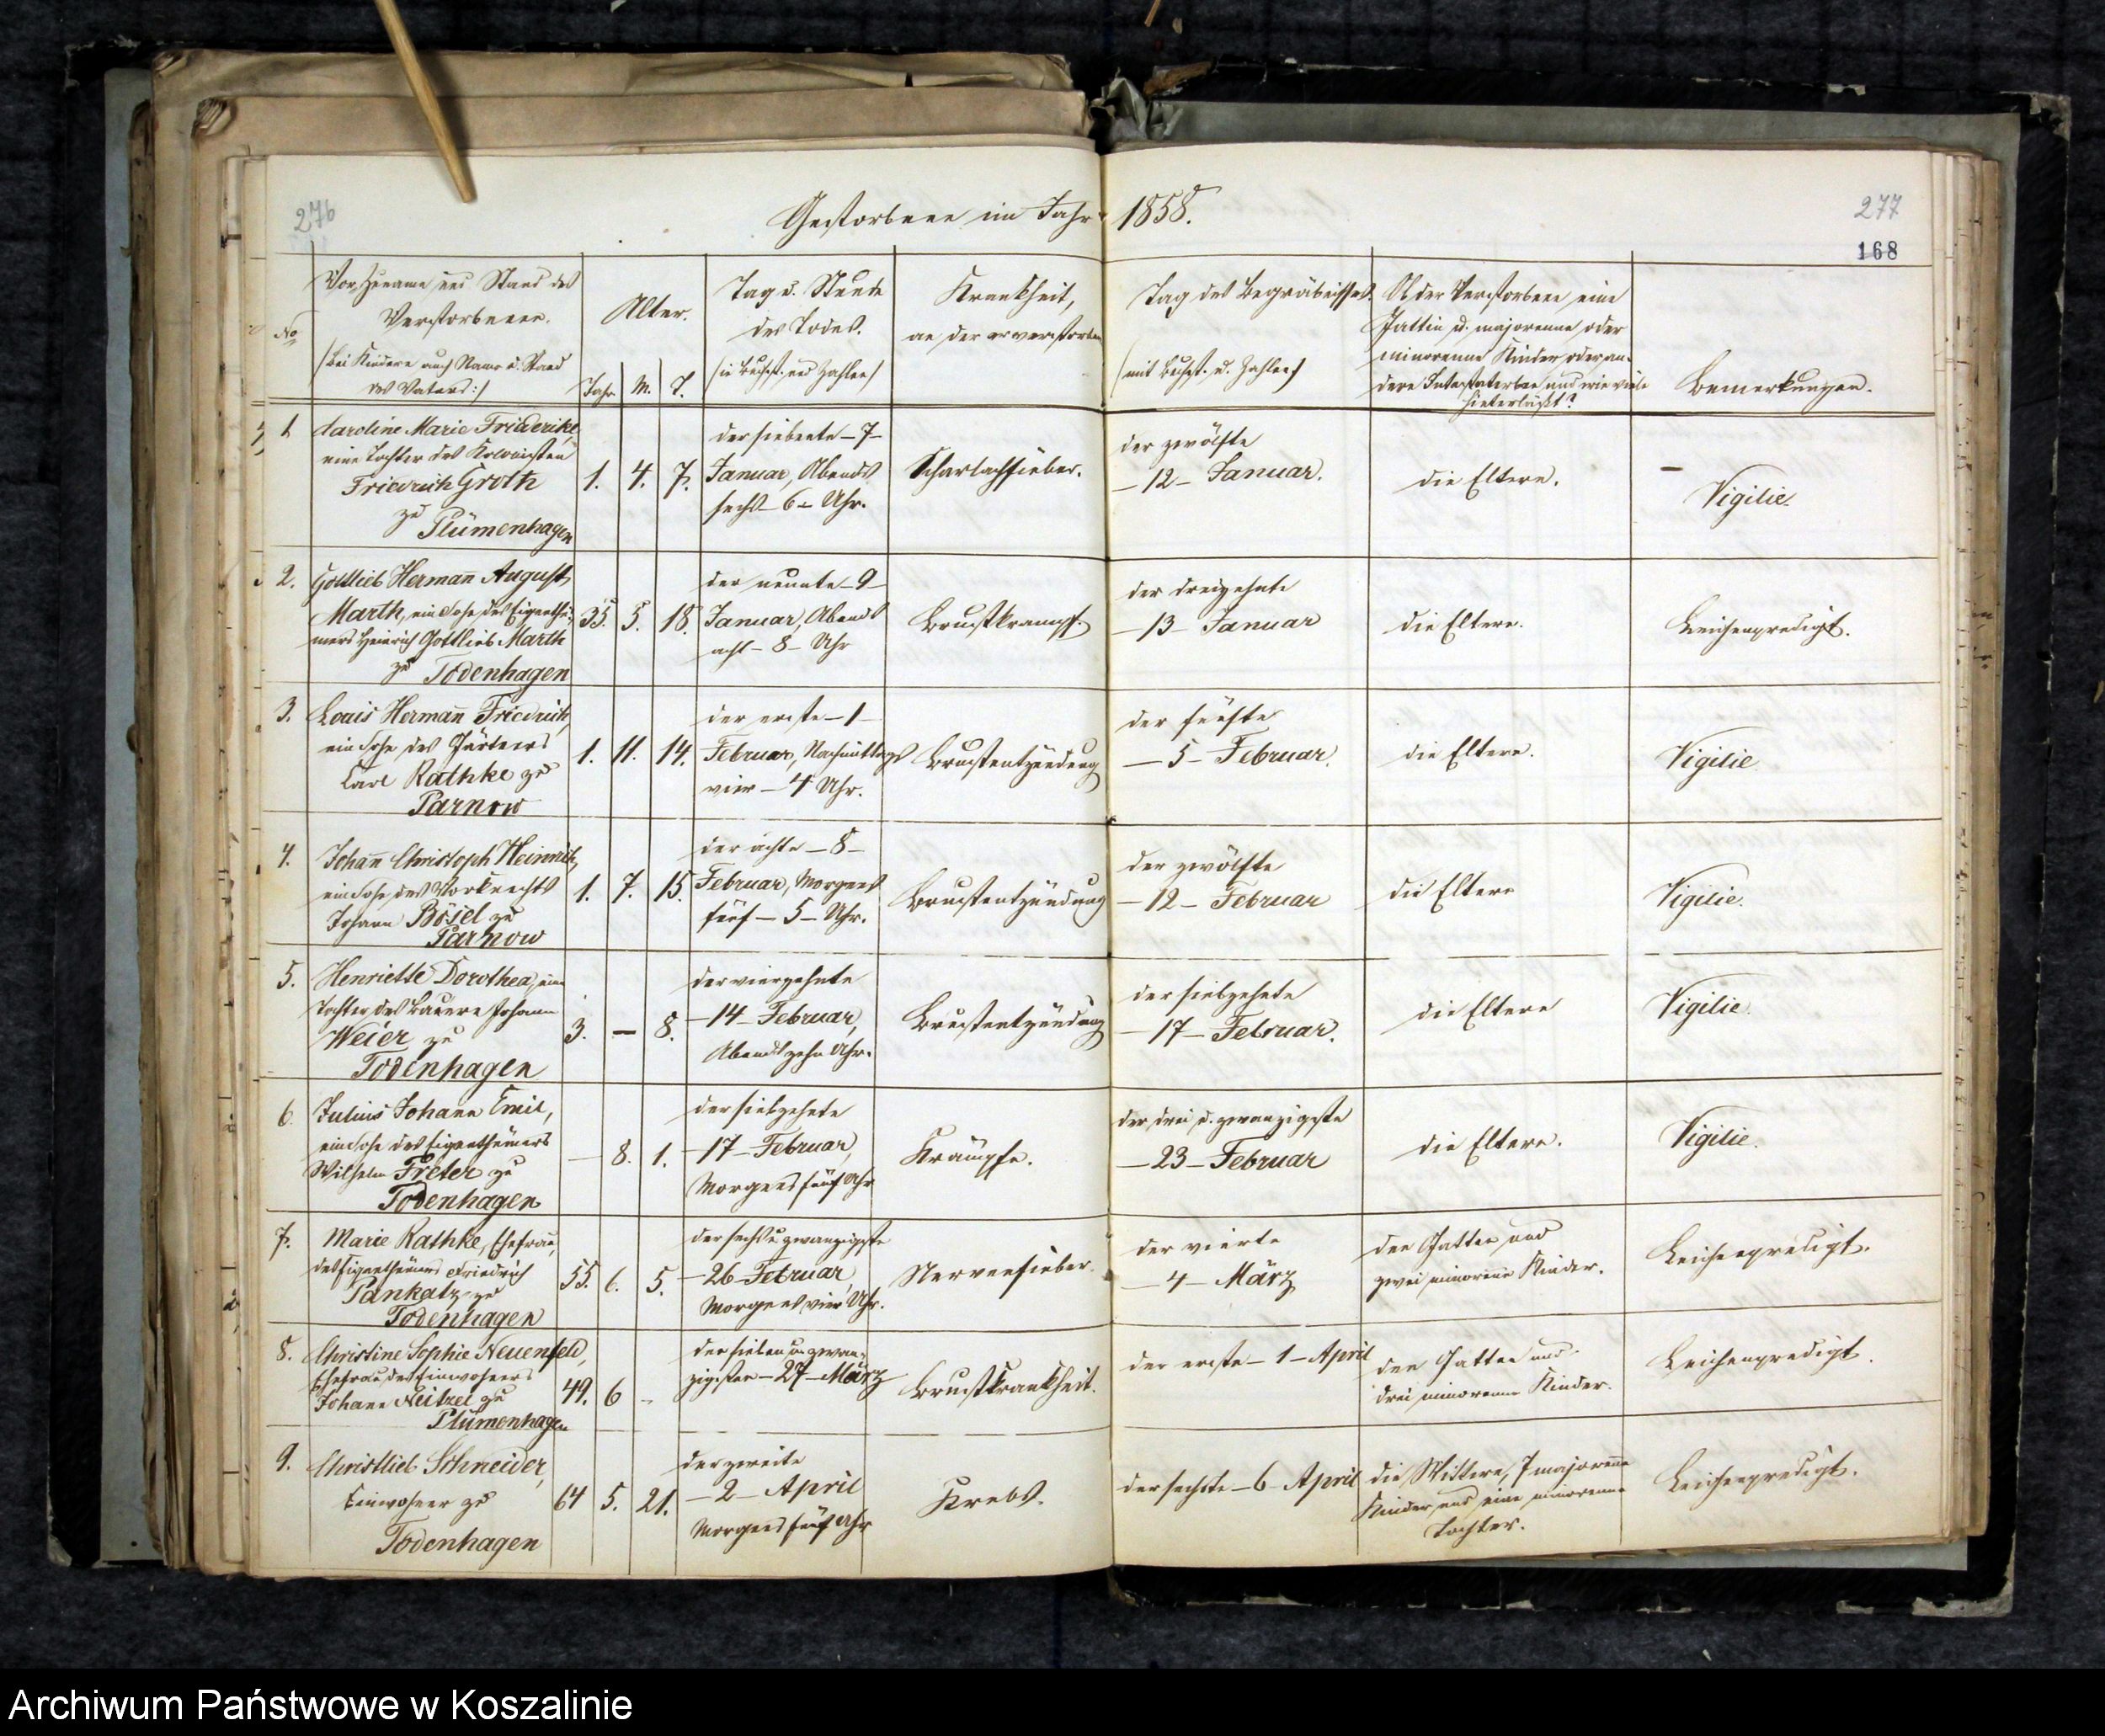 276
Gestorbene im Jahr 1858.
277
168
No
Vor, Zuname und Stand des
Verstorbenen.
(bei Kindern auch Name u. Stand
des Vaters:)
Alter.
Jahr. M. T.
Tag u. Stunde
des Todes.
(in Buchst. und Zahlen)
Krankheit,
an der er verstorben
Tag des Begräbnisses.
(mit Buchst. u. Zahlen)
Ob der Verstorbene eine
Gattin u. majorenne oder
minorenne Kinder, oder an-
dere Intestaterben und wie viele
hinterläßt?
Bemerkungen.
1 Caroline Marie Friderike,
eine Tochter des Kolonisten
Friedrich Groth
zu Plümenhagen
1. 4. 7.
der siebente – 7 –
Januar, Abends
sechs – 6 – Uhr.
Scharlachfieber.
der zwölfte
– 12 – Januar.
die Eltern.
–
Vigilie.
2. Gottlieb Hermañ August
Marth, ein Sohn des Eigenthü-
mers Heinrich Gottlieb Marth
zu Todenhagen
35. 5. 18.
der neunte – 9 –
Januar, Abends
acht – 8 – Uhr
Brustkrampf.
der dreizehnte
– 13 – Januar
die Eltern.
Leichenpredigt.
3. Louis Hermañ Friedrich,
ein Sohn des Gärtners
Carl Rathke zu
Parnow
1. 11. 14.
der erste – 1 –
Februar, Nachmittags
vier – 4 Uhr.
Brustentzündung
der fünfte
– 5 – Februar.
die Eltern.
Vigilie
4. Johañ Christoph Heinrich,
ein Sohn des Vorknechts
Johann Bösel zu
Parnow
1. 7. 15.
der achte – 8 –
Februar, Morgens
fünf – 5 – Uhr.
Brustentzündung
der zwölfte
– 12 – Februar
die Eltern
Vigilie.
5. Henriette Dorothea, eine
Tochter des Bauern Johann
Weier zu
Todenhagen
3. – 8.
der vierzehnte
– 14 – Februar,
Abends zehn Uhr.
Brustentzündung
der siebzehnte
– 17 – Februar.
die Eltern
Vigilie.
6. Julius Johann Emil,
ein Sohn des Eigenthümers
Wilhelm Freter zu
Todenhagen
– 8. 1.
der siebzehnte
– 17 – Februar,
Morgens fünf Uhr
Krämpfe.
der drei u. zwanzigste
– 23 – Februar
die Eltern.
Vigilie.
7. Marie Rathke, Ehefrau
des Eigenthümers Friedrich
Pankatz zu
Todenhagen
55. 6. 5.
der sechs u. zwanzigste
– 26 – Februar,
Morgens vier Uhr.
Nervenfieber.
der vierte
– 4 – März
den Gatten und
zwei minorenne Kinder.
Leichenpredigt.
8. Christine Sophie Neuenfeld,
Ehefrau des Einwohners
Johann Neitzel zu
Plümenhagen
49. 6 –
den sieben u. zwan-
zigsten – 27 – März
Brustkrankheit.
der erste – 1 – April
den Gatten und
drei minorenne Kinder.
Leichenpredigt.
9. Christlieb Schneider,
Einwohner zu
Todenhagen
64 5. 21.
der zweite
– 2 – April
Morgens fünf Uhr
Krebs.
der sechste – 6 April
die Wittwe, 7 majorenne
Kinder und eine minorenne
Tochter.
Leichenpredigt.
Archiwum Państwowe w Koszalinie